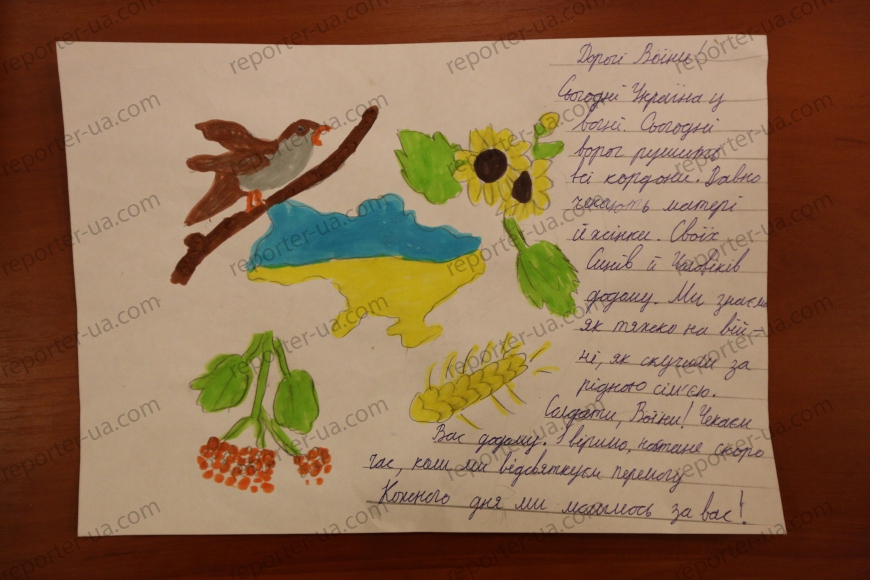 Дорогі Воїни!
Сьогодні Україна у
вогні. Сьогодні
ворог рушить
всі кордони. Давно
чекають матері
й жінки. Своїх
Синів й Чоловіків
додому. Ми знаєм
як тяжко на вій-
ні, як скучили за
рідною сім'єю.
Солдати, Воїни! Чекаєм
Вас додому. І віримо, настане скоро
час, коли ми відсвяткуєм перемогу
Кожного дня ми молимось за вас!
reporter-ua.com